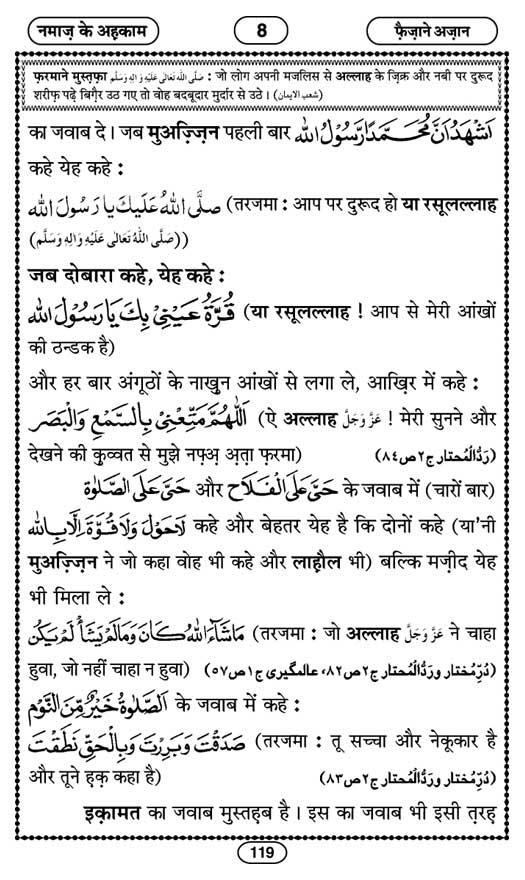 नमाज़ के अहकाम
8
फ़ैज़ाने अज़ान
फ़रमाने मुस्त़फ़ा صَلَّى اللهُ تَعَالٰى عَلَيْهِ وَاٰلِهٖ وَسَلَّم : जो लोग अपनी मजलिस से अल्लाह के ज़िक्र और नबी पर दुरूद
शरीफ़ पढ़े बिग़ैर उठ गए तो वोह बदबूदार मुर्दार से उठे । (شعب الایمان)
का जवाब दे । जब मुअज़्ज़िन पहली बार اَشْهَدُ اَنَّ مُحَمَّدًا رَّسُوْلُ اللهِ
कहे येह कहे :
صَلَّى اللهُ عَلَيْكَ يَا رَسُوْلَ الله (तरजमा : आप पर दुरूद हो या रसूलल्लाह
(صَلَّى اللهُ تَعَالٰى عَلَيْهِ وَاٰلِهٖ وَسَلَّم))
जब दोबारा कहे, येह कहे :
قُرَّةُ عَيْنِيْ بِكَ يَا رَسُوْلَ الله (या रसूलल्लाह ! आप से मेरी आंखों
की ठन्डक है)
और हर बार अंगूठों के नाख़ुन आंखों से लगा ले, आख़िर में कहे :
اَللّٰهُمَّ مَتِّعْنِيْ بِالسَّمْعِ وَالْبَصَر (ऐ अल्लाह عَزَّوَجَلَّ ! मेरी सुनने और
देखने की कुव्वत से मुझे नफ़्अ़ अ़ता फ़रमा) (رَدُّالْمُحتار ج٢ ص٨٤)
حَىَّ عَلَى الصَّلٰوة और حَىَّ عَلَى الْفَلَاح के जवाब में (चारों बार)
لَاحَوْلَ وَلَا قُوَّةَ اِلَّا بِالله कहे और बेहतर येह है कि दोनों कहे (या'नी
मुअज़्ज़िन ने जो कहा वोह भी कहे और लाह़ौल भी) बल्कि मज़ीद येह
भी मिला ले :
مَاشَآءَ اللهُ كَانَ وَمَالَمْ يَشَأْ لَمْ يَكُنْ (तरजमा : जो अल्लाह عَزَّوَجَلَّ ने चाहा
हुवा, जो नहीं चाहा न हुवा) (دُرِّمُختار ورَدُّالْمُحتار ج٢ ص٨٢، عالمگیری ج١ ص٥٧)
اَلصَّلٰوةُ خَيْرٌ مِّنَ النَّوْم के जवाब में कहे :
صَدَقْتَ وَبَرِرْتَ وَبِالْحَقِّ نَطَقْتَ (तरजमा : तू सच्चा और नेकूकार है
और तूने ह़क़ कहा है) (دُرِّمُختار ورَدُّالْمُحتار ج٢ ص٨٣)
इक़ामत का जवाब मुस्तह़ब है । इस का जवाब भी इसी त़रह़
119